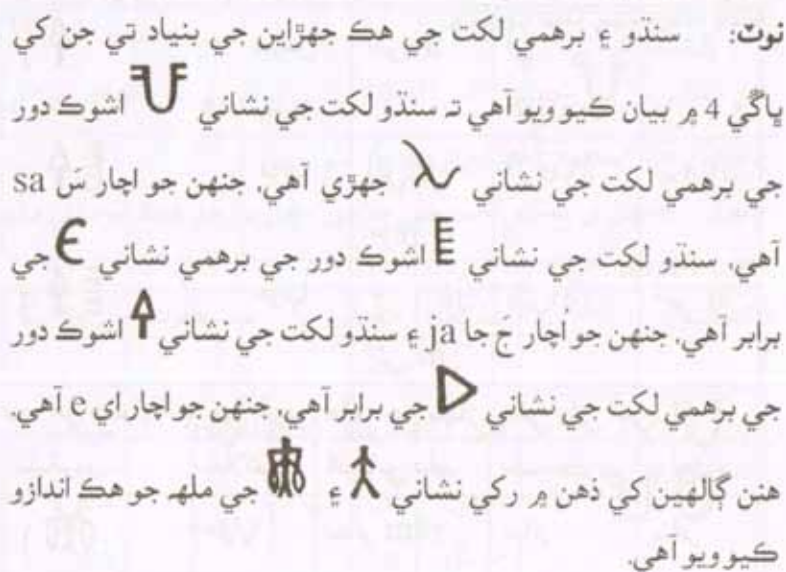 نوٽ: سنڌو ۽ برهمي لکت جي هڪ جهڙاين جي بنياد تي جن کي
ڀاڱي 4 ۾ بيان ڪيو ويو آهي تہ سنڌو لکت جي نشاني اشوڪ دور
جي برهمي لکت جي نشاني جهڙي آهي، جنهن جو اچار سَ sa
آهي، سنڌو لکت جي نشاني اشوڪ دور جي برهمي نشاني جي
برابر آهي، جنهن جو اُچار جَ جا ja ۽ سنڌو لکت جي نشاني اشوڪ دور
جي برهمي لکت جي نشاني جي برابر آهي، جنهن جو اچار اي e آهي.
هنن ڳالهين کي ذهن ۾ رکي نشاني ۽ جي ملهہ جو هڪ اندازو
ڪيو ويو آهي.